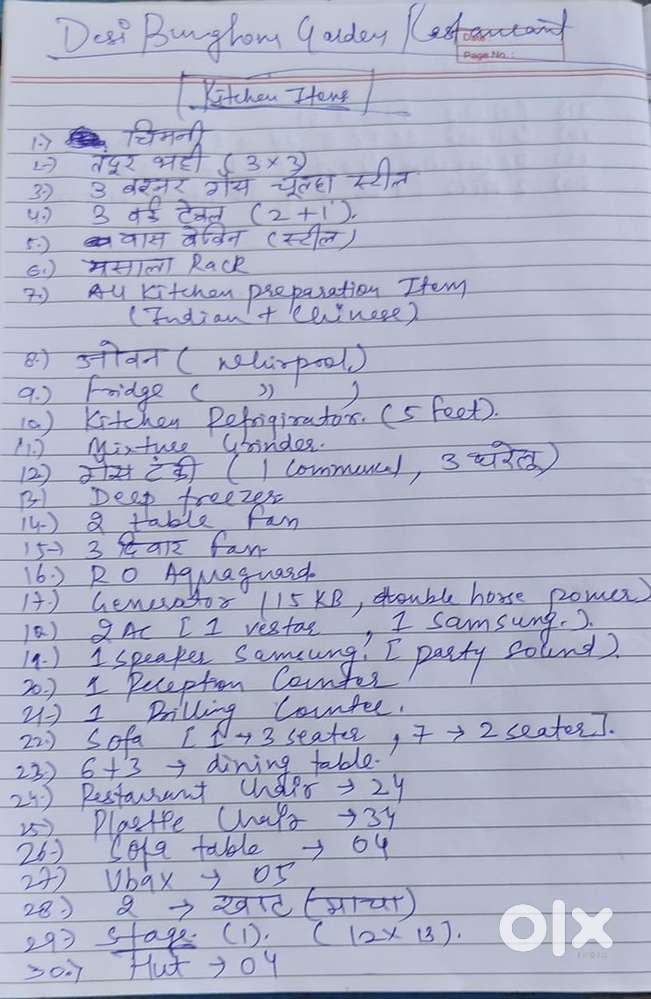 Desi Bunghom Garden Restaurant
Page No.:
Kitchen Items
1.) चिमनी
2.) तंदूर भट्टी (3 x 3)
3.) 3 बरनर गैस चूल्हा स्टील
4.) 3 वर्क टेबल (2+1).
5.) वास बेसिन (स्टील)
6.) मसाला Rack
7.) All Kitchen preparation Item
(Indian + Chinese)
8.) ओवन ( Whirpool)
9.) Fridge ( " )
10.) Kitchen Refrigirator. (5 feet).
11.) Mixture Grinder.
12.) गैस टंकी ( 1 Commercal, 3 घरेलू)
13.) Deep freezer
14.) 2 table fan
15.) 3 दिवार fan
16.) RO Aquaguard
17.) Generator (15 KB, double horse power)
18.) 2 AC [ 1 vestar , 1 Samsung.).
19.) 1 speaker Samsung. [ party sound).
20.) 1 Reception Counter
21.) 1 Billing Counter.
22.) Sofa [ 1 → 3 seater , 7 → 2 seater].
23.) 6+3 → dining table.
24.) Restaurant Chair → 24
25.) Plastic Chair → 34
26.) Sofa table → 04
27.) → 05
28.) 2 → खाट (माचा)
29.) Stage. (1). ( 12 x 13).
30.) Hut → 04
olx
INDIA